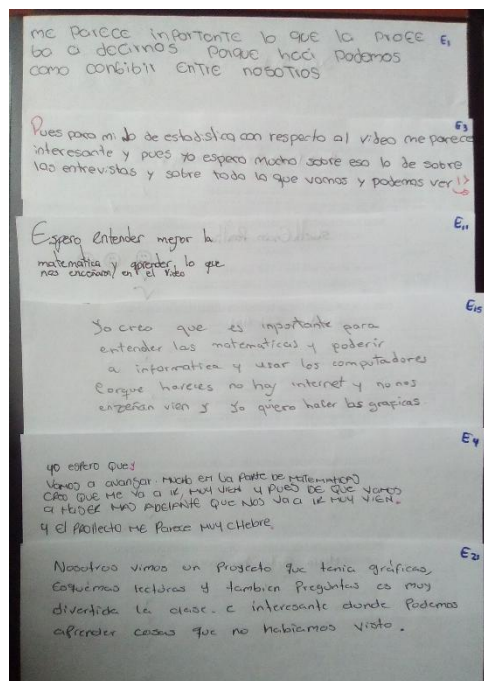 me parece inportante lo que la profe E1
bo a decirnos porque haci podemos
como conbibir entre nosotros
E3
Pues para mi lo de estadistica con respecto al video me parece
interesante y pues yo espero mucho sobre eso lo de sobre
las entrevistas y sobre todo lo que vamos y podemos ver
E11
Espero entender mejor la
matematica y aprender lo que
nos enceñaron en el video
E15
Yo creo que es inportante para
entender las matematicas y poderir
a informatica y usar los computadores
Porque hareces no hay internet y no nos
enzeñan vien y yo quiero hacer las graficas
E4
yo espero que
vamos a avanzar mucho en la parte de matematicas
creo que me va a ir muy vien y pues de que vamos
a poder mas adelante que nos va a ir muy vien.
y el prollecto me parece muy chebre.
E20
Nosotros vimos un proyecto que tenia gráficas,
Esquemas lecturas y tambien preguntas es muy
divertida la clase. e interesante donde podemos
aprender cosas que no habiamos visto.